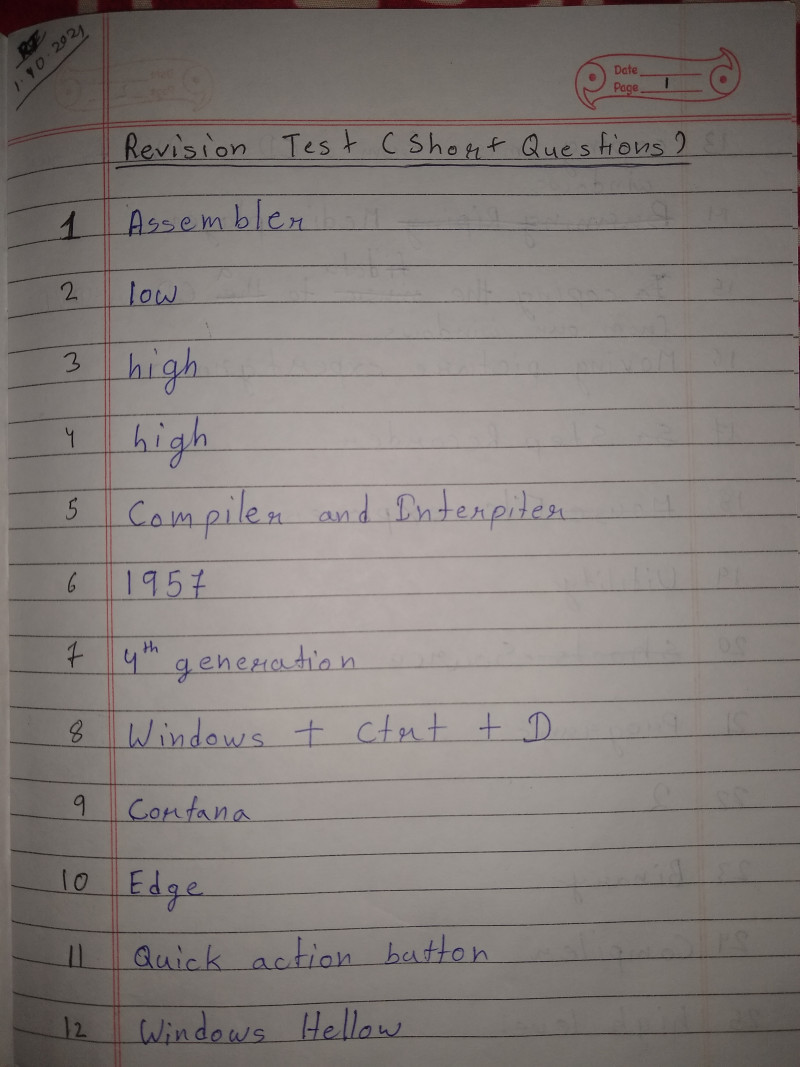 1.10.2021
Date
Page 1
Revision Test (Short Questions)
1 Assembler
2 low
3 high
4 high
5 Compiler and Interpiter
6 1957
7 4th generation
8 Windows + Ctrt + D
9 Cortana
10 Edge
11 Quick action button
12 Windows Hellow